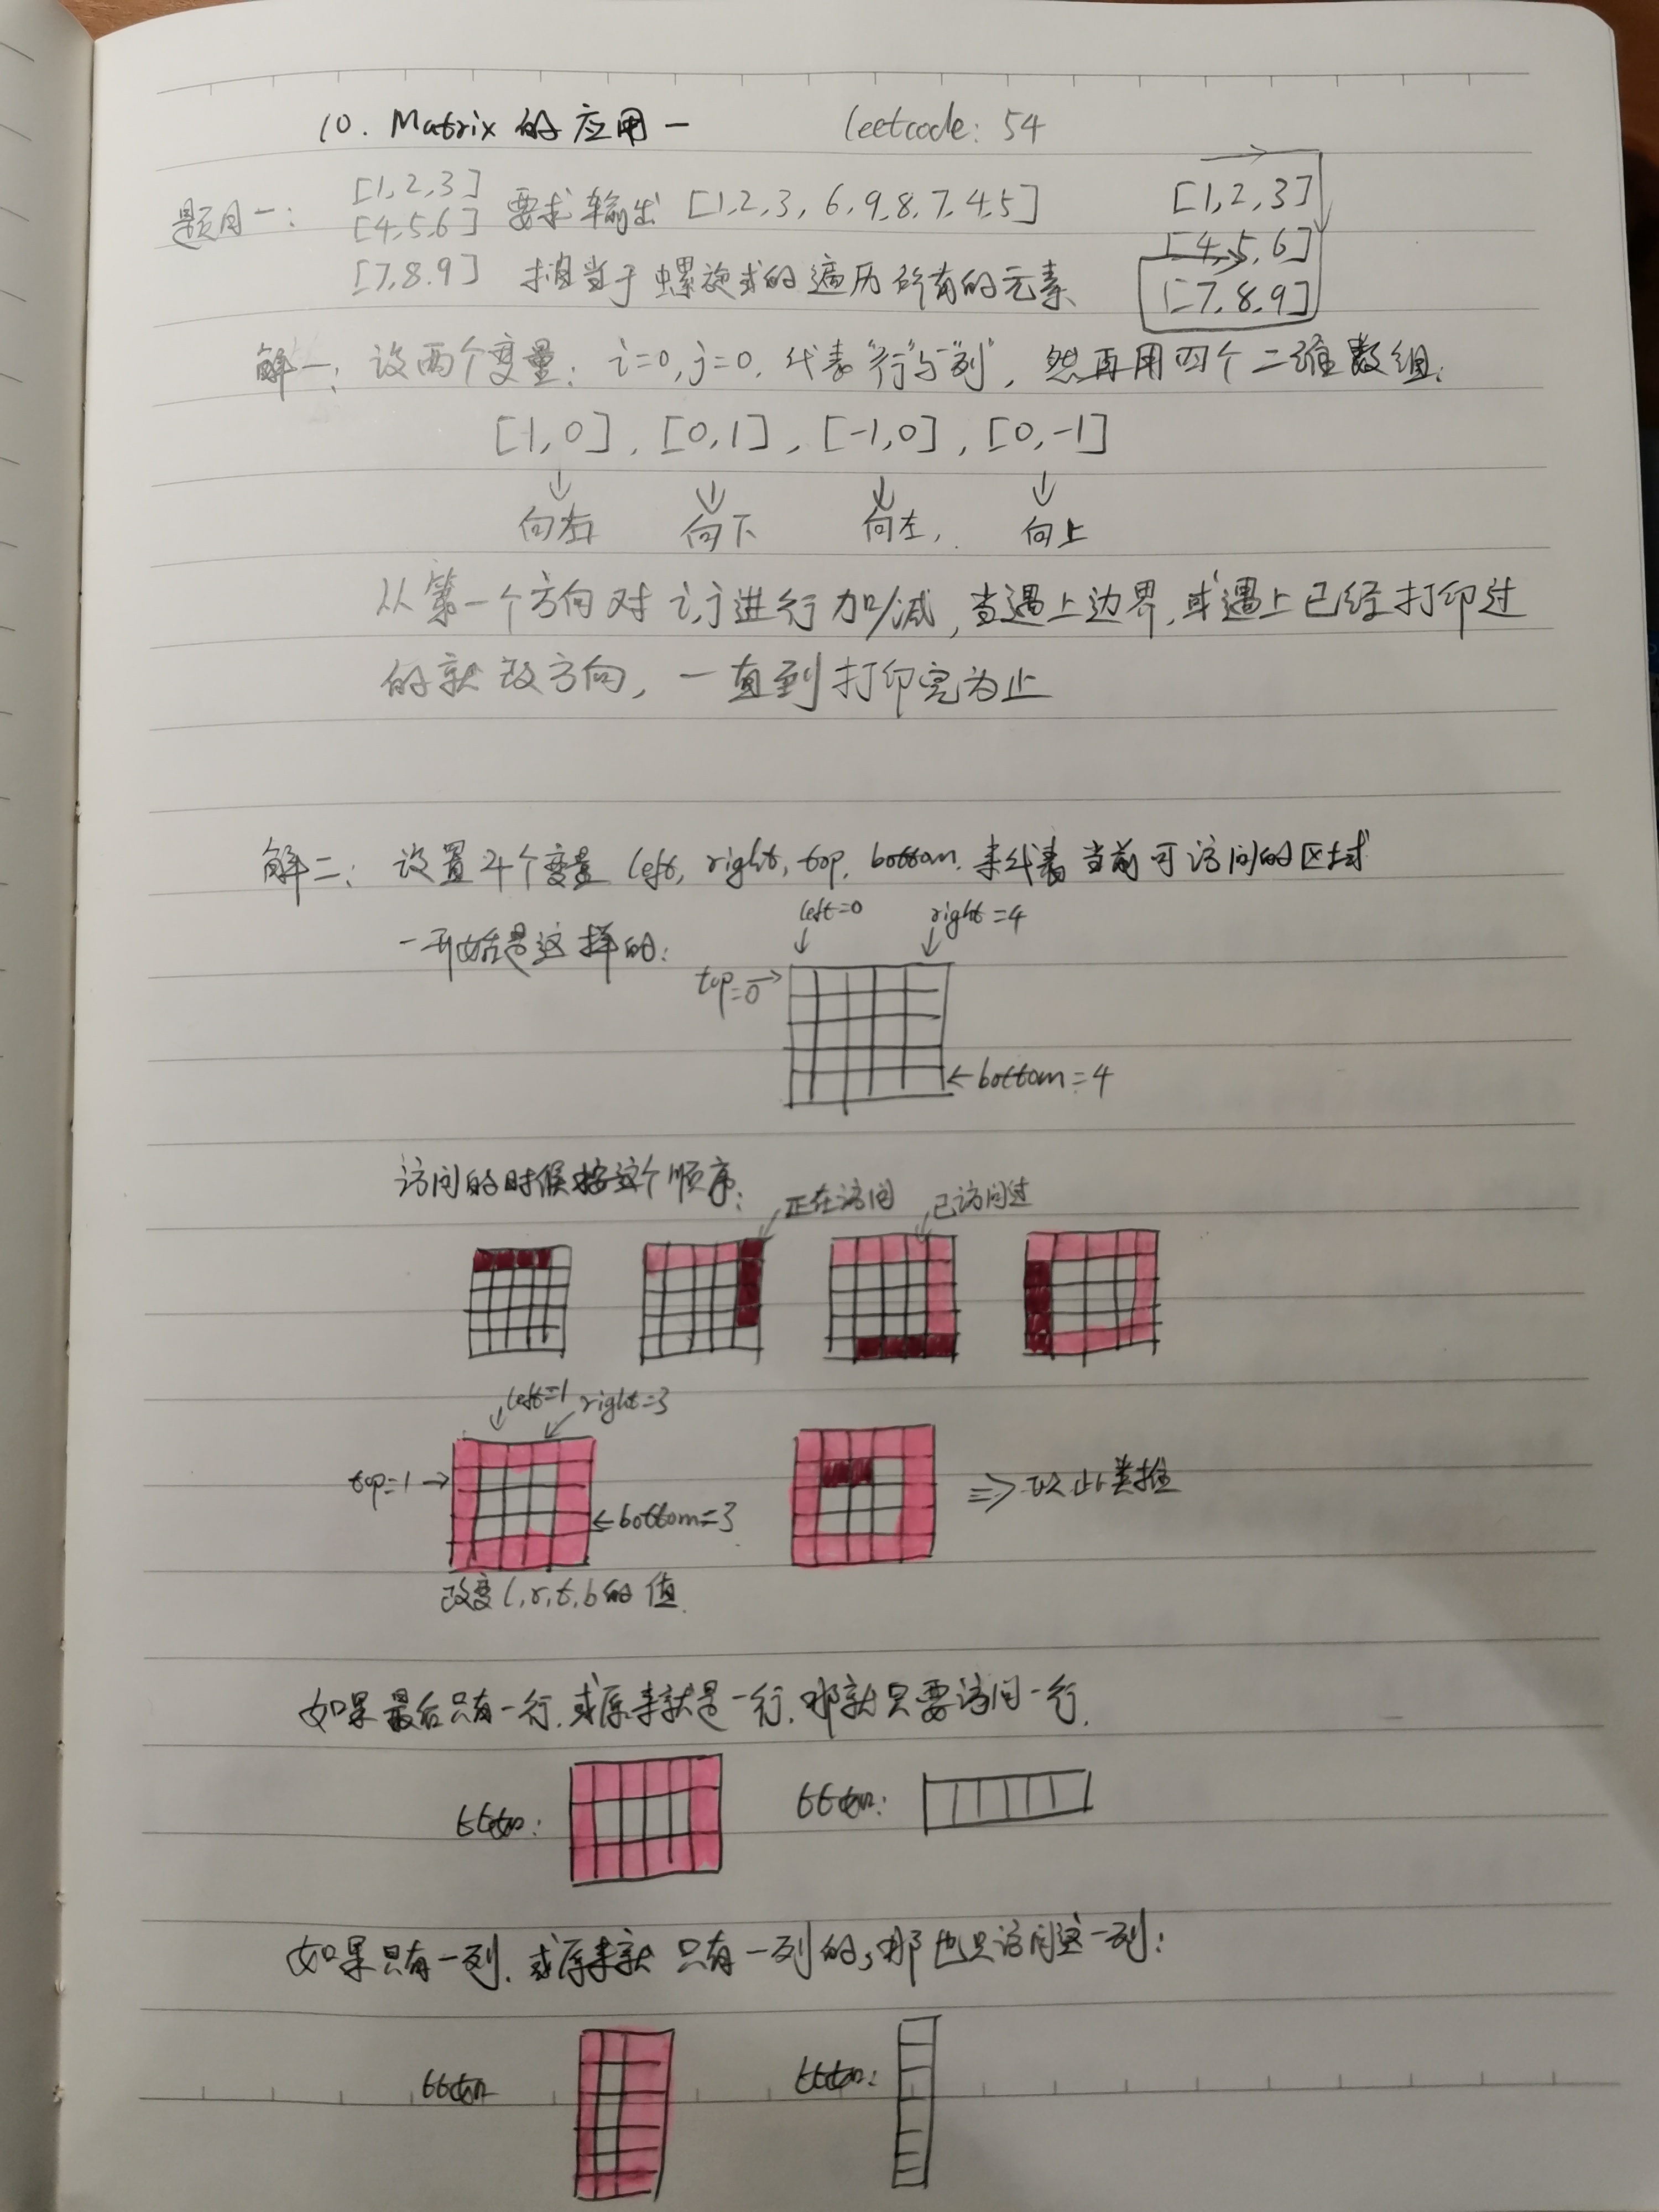 10. Matrix 的应用一 leetcode: 54
题目一: [1,2,3] 要求输出 [1,2,3,6,9,8,7,4,5] [1,2,3]
[4,5,6] [4,5,6]
[7,8.9] 相当于螺旋式的遍历所有的元素 [7,8.9]
解一: 设两个变量: i=0,j=0. 代表"行"与"列", 然再用四个二维数组:
[1,0], [0,1], [-1,0], [0,-1]
向右 向下 向左, 向上
从第一个方向对i,j进行加/减,当遇上边界,或遇上已经打印过
的就改方向,一直到打印完为止
解二: 设置4个变量 left, right, top, bottom. 来代表当前可访问的区域
left=0 right=4
一开始是这样的:
top=0
←bottom=4
访问的时候按这个顺序:
正在访问 已访问过
left=1 right=3
top=1→
←bottom=3
⇒以此类推
改变l,r,t,b的值
如果最后只有一行.或原来就是一行.那就只要访问一行.
比如: 比如:
如果只有一列.或原来就只有一列的,那也只访问这一列:
比如 比如: